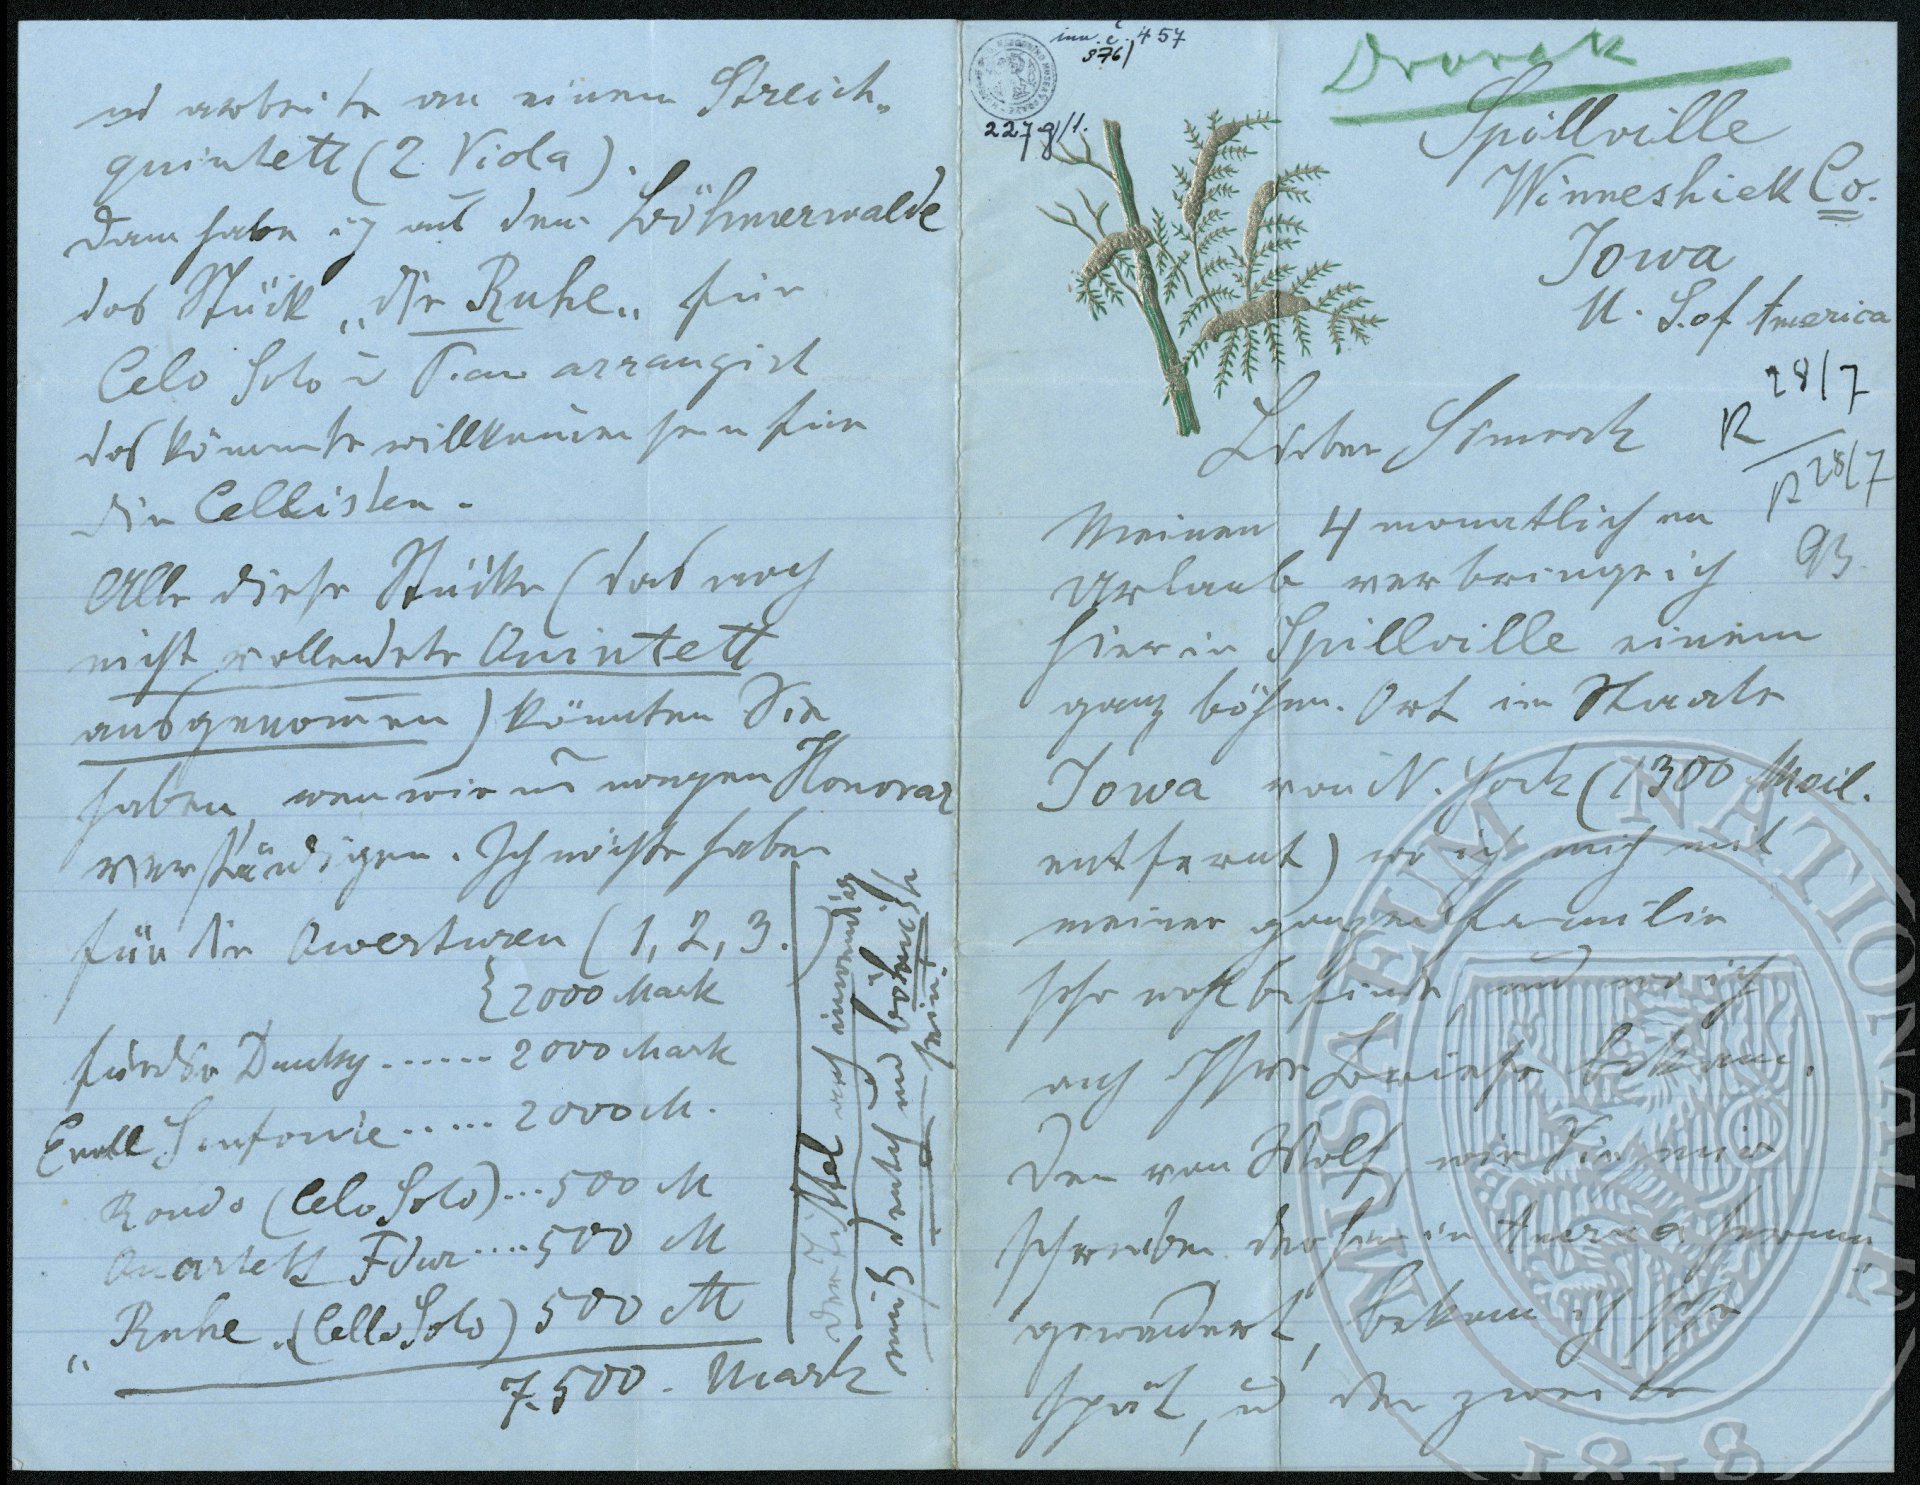 ŭ arbeite an einem Streich-
quintett (2 Viola).
Dann habe ich aus dem Böhmerwalde
das Stück „die Ruhe" für
Celo Solo ŭ Piano arrangirt
das könnte willkommen sein für
die Cellisten.
Alle diese Stücke (das noch
nicht vollendete Quintett
ausgenomen) könnten Sie
haben, wen wir uns wegen Honorar
verständigen. Ich möchte haben
für die Overturen (1, 2, 3.)
{2000 Mark
für die Dumky ...... 2000 Mark
Emoll Sinfonie ...... 2000 M.
Rondo (Celo Solo) ... 500 M
Quartett Fdur .... 500 M
„Ruhe" (Cello Solo) 500 M
7.500. Mark
Der Tittel auch inwendig
muß deutsch und böhmisch
sein.
inv. č. 457
876/
227g/1.
Dvorak
Spillville
Winneshiek Co.
Iowa
U. S. of America
R 28/7
R 28/7
93.
Lieber Simrock
Meinen 4 monatlichen
Urlaub verbringe ich
hier in Spillville einem
ganz böhm. Ort im Staate
Iowa von N. York (1300 Meil.
entfernt) wo ich mich mit
meiner ganzen Familie
sehr wohl befinde, und wo ich
auch Ihre Briefe bekam.
Den von Wolf, wie Sie mir
schreiben der hier in America herum
gewandert, bekam ich sehr
spät, ŭ den zweiten
MUSEUM NATIONALE
1818